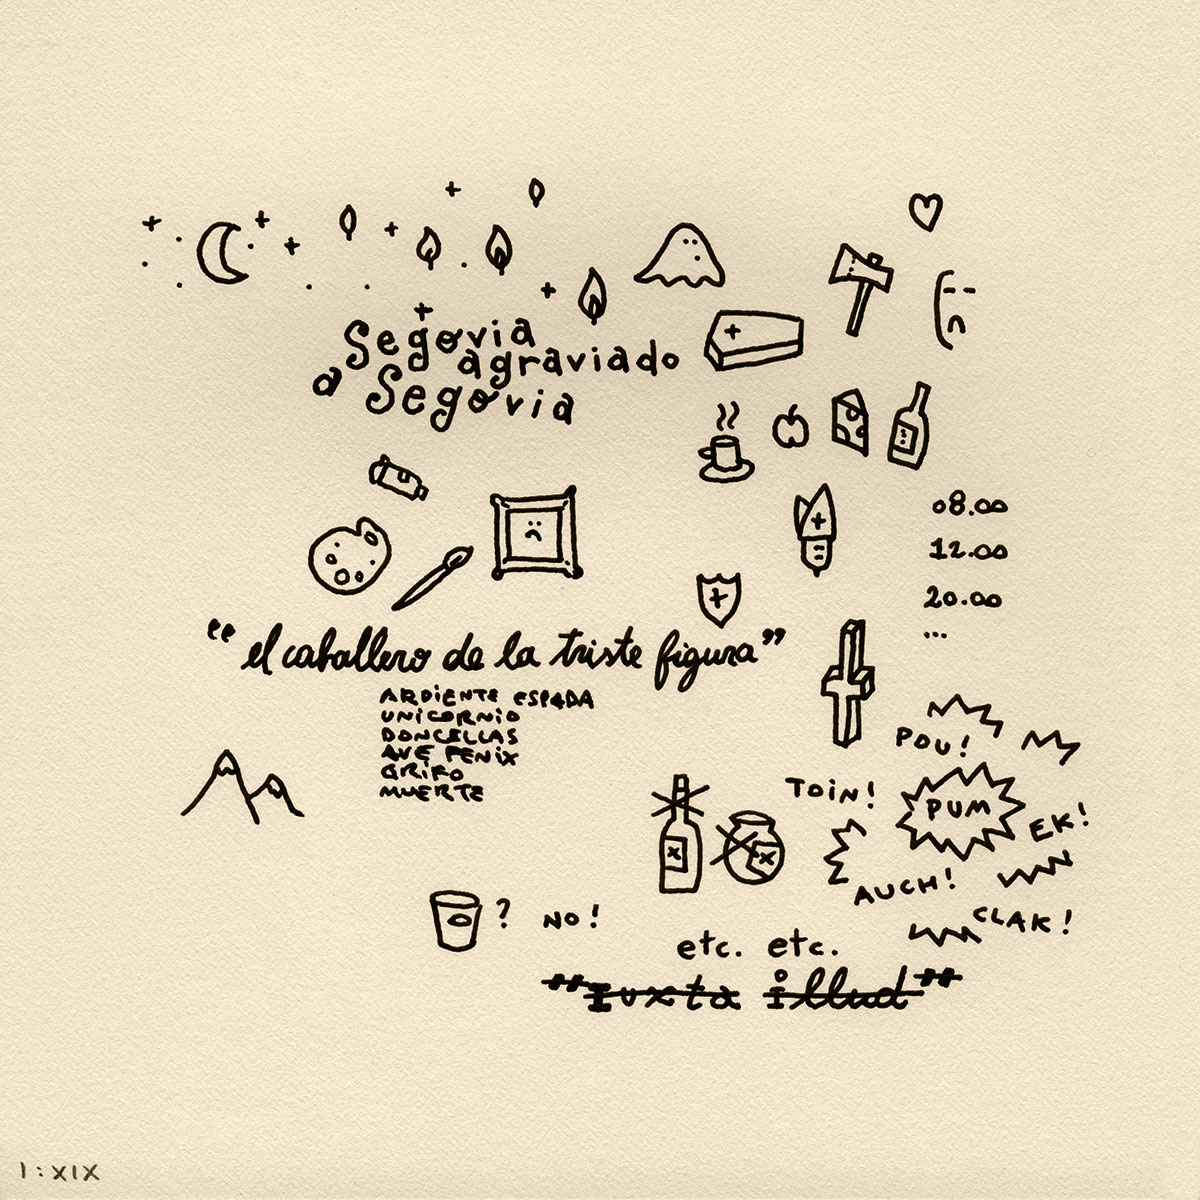 Segovia
agraviado
a Segovia
08.00
12.00
20.00
...
"el caballero de la triste figura"
ARDIENTE ESPADA
UNICORNIO
DONCELLAS
AVE FENIX
GRIFO
MUERTE
POU!
TOIN!
PUM
EK!
AUCH!
CLAK!
? NO!
etc. etc.
"Iuxta illud"
1:XIX